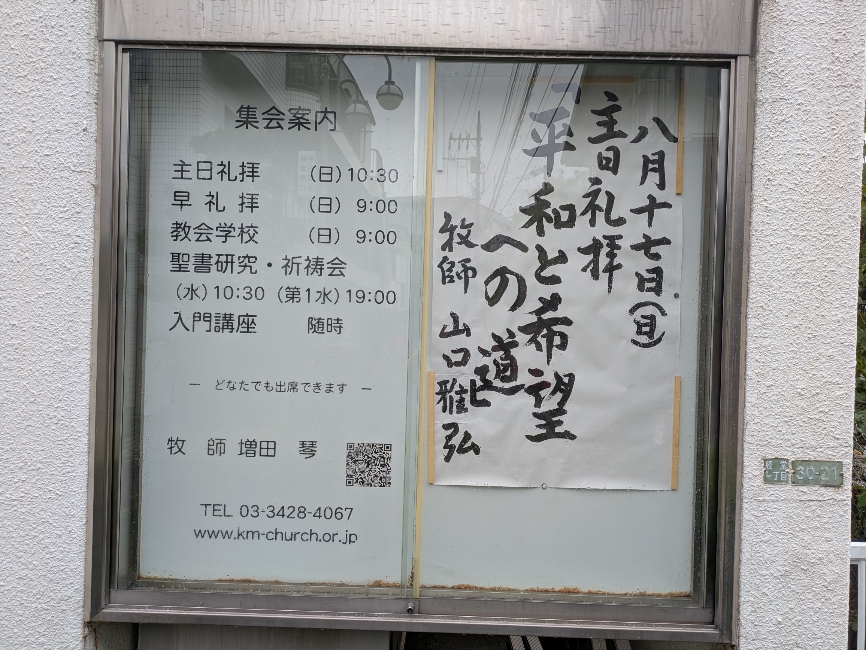 集会案内
主日礼拝 (日) 10:30
早礼拝 (日) 9:00
教会学校 (日) 9:00
聖書研究・祈祷会
(水) 10:30 (第1水) 19:00
入門講座 随時
― どなたでも出席できます ―
牧師 増田 琴
TEL 03-3428-4067
www.km-church.or.jp
八月十七日(日)
主日礼拝
「平和と希望
への道」
牧師 山口雅弘
30-21